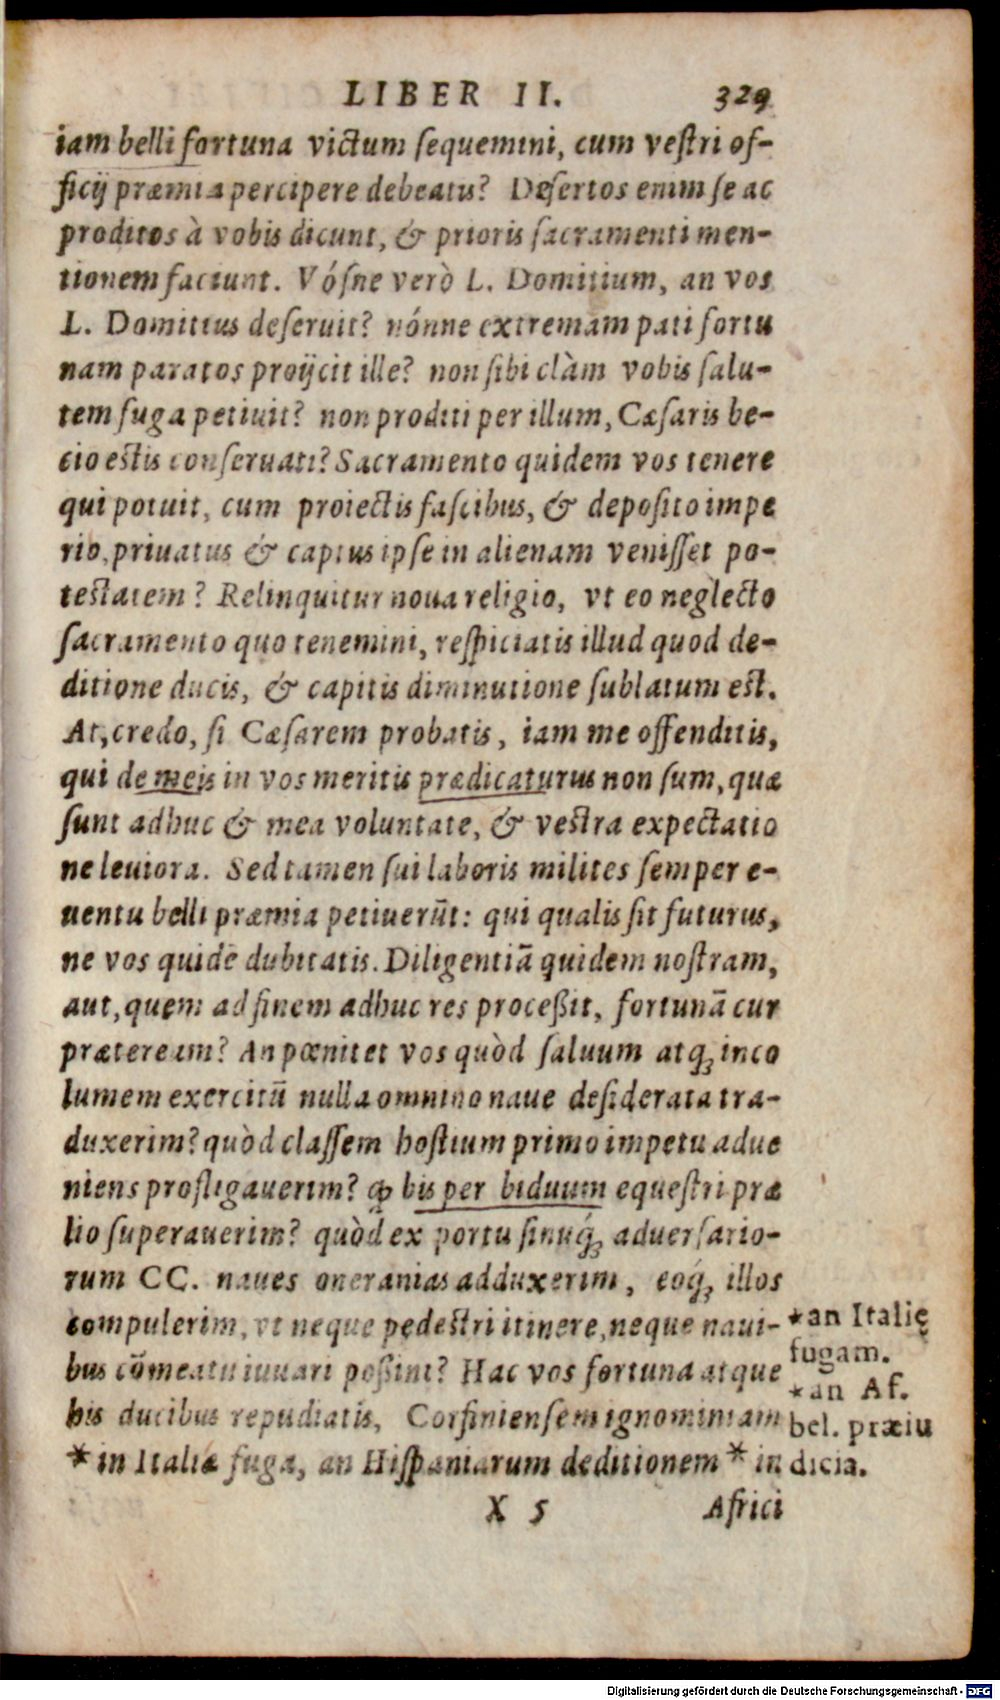 LIBER II. 329
iam belli fortuna victum ſequemini, cum veſtri of-
ficij præmia percipere debeatis? Deſertos enim ſe ac
proditos à vobis dicunt, & prioris ſacramenti men-
tionem faciunt. Vóſne verò L. Domitium, an vos
L. Domitius deſeruit? nónne extremam pati fortu
nam paratos proijcit ille? non ſibi clàm vobis ſalu-
tem fuga petiuit? non proditi per illum, Cæſaris be-
cio estis conſeruati? Sacramento quidem vos tenere
qui potuit, cum proiectis faſcibus, & depoſito impe
rio, priuatus & captus ipſe in alienam veniſſet po-
testatem? Relinquitur noua religio, vt eo neglecto
ſacramento quo tenemini, reſpiciatis illud quod de-
ditione ducis, & capitis diminutione ſublatum est.
At, credo, ſi Cæſarem probatis, iam me offenditis,
qui de meis in vos meritis prædicaturus non ſum, quæ
ſunt adhuc & mea voluntate, & vestra expectatio
ne leuiora. Sed tamen ſui laboris milites ſemper e-
uentu belli præmia petiuerũt: qui qualis ſit futurus,
ne vos quidẽ dubitatis. Diligentiã quidem noſtram,
aut, quem ad finem adhuc res proceßit, fortunã cur
præteream? An pœnitet vos quòd ſaluum atq; inco
lumem exercitũ nulla omnino naue deſiderata tra-
duxerim? quòd claſſem hoſtium primo impetu adue
niens profligauerim? ꝙ bis per biduum equeſtri præ
lio ſuperauerim? quòd ex portu ſinuq́; aduerſario-
rum CC. naues onerarias adduxerim, eoq́; illos
compulerim, vt neque pedestri itinere, neque naui-
bus cõmeatu iuuari poßint? Hac vos fortuna atque
his ducibus repudiatis, Corfinienſem ignominiam
* in Italiæ fuga, an Hiſpaniarum deditionem * in
*an Italię
fugam.
*an Af.
bel. præiu
dicia.
X 5 Africi
Digitalisierung gefördert durch die Deutsche Forschungsgemeinschaft - DFG